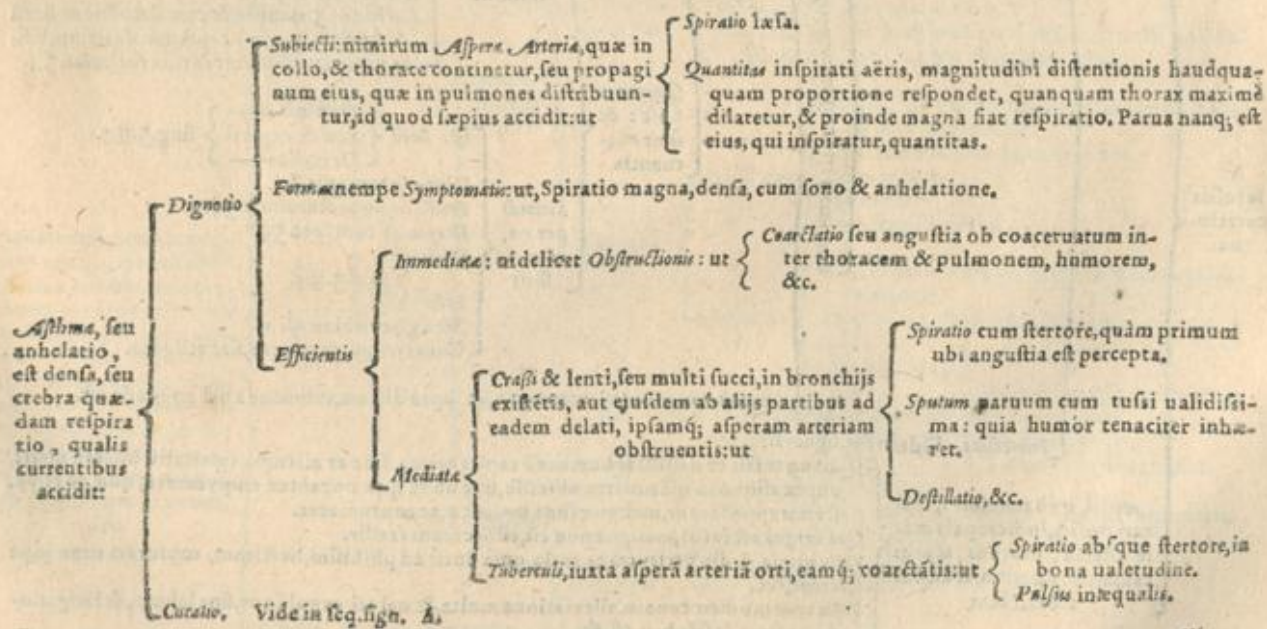 Asthma, seu
anhelatio,
est densa, seu
crebra quæ-
dam respira
tio, qualis
currentibus
accidit:
Dignotio
Subiecti: nimirum Asperæ Arteriæ, quæ in
collo, & thorace continetur, seu propagi
num eius, quæ in pulmones distribuun-
tur, id quod sæpius accidit: ut
Spiratio læsa.
Quantitas inspirati aëris, magnitudini distentionis haudqua-
quam proportione respondet, quanquam thorax maximè
dilatetur, & proinde magna fiat respiratio. Parua nanq; est
eius, qui inspiratur, quantitas.
Formæ nempe Symptomatis: ut, Spiratio magna, densa, cum sono & anhelatione.
Efficientis
Immediatæ: uidelicet Obstructionis: ut
Coarctatio seu angustia ob coaceruatum in-
ter thoracem & pulmonem, humorem,
&c.
Mediatæ
Crassi & lenti, seu multi succi, in bronchijs
existētis, aut eiusdem ab alijs partibus ad
eadem delati, ipsamq; asperam arteriam
obstruentis: ut
Spiratio cum stertore, quàm primum
ubi angustia est percepta.
Sputum paruum cum tussi ualidissi-
ma: quia humor tenaciter inhæ-
ret.
Destillatio, &c.
Tuberculi, iuxta asperā arteriā orti, eamq; coarctātis: ut
Spiratio absque stertore, in
bona ualetudine.
Pulsus inæqualis.
Curatio. Vide in seq. sign. A.